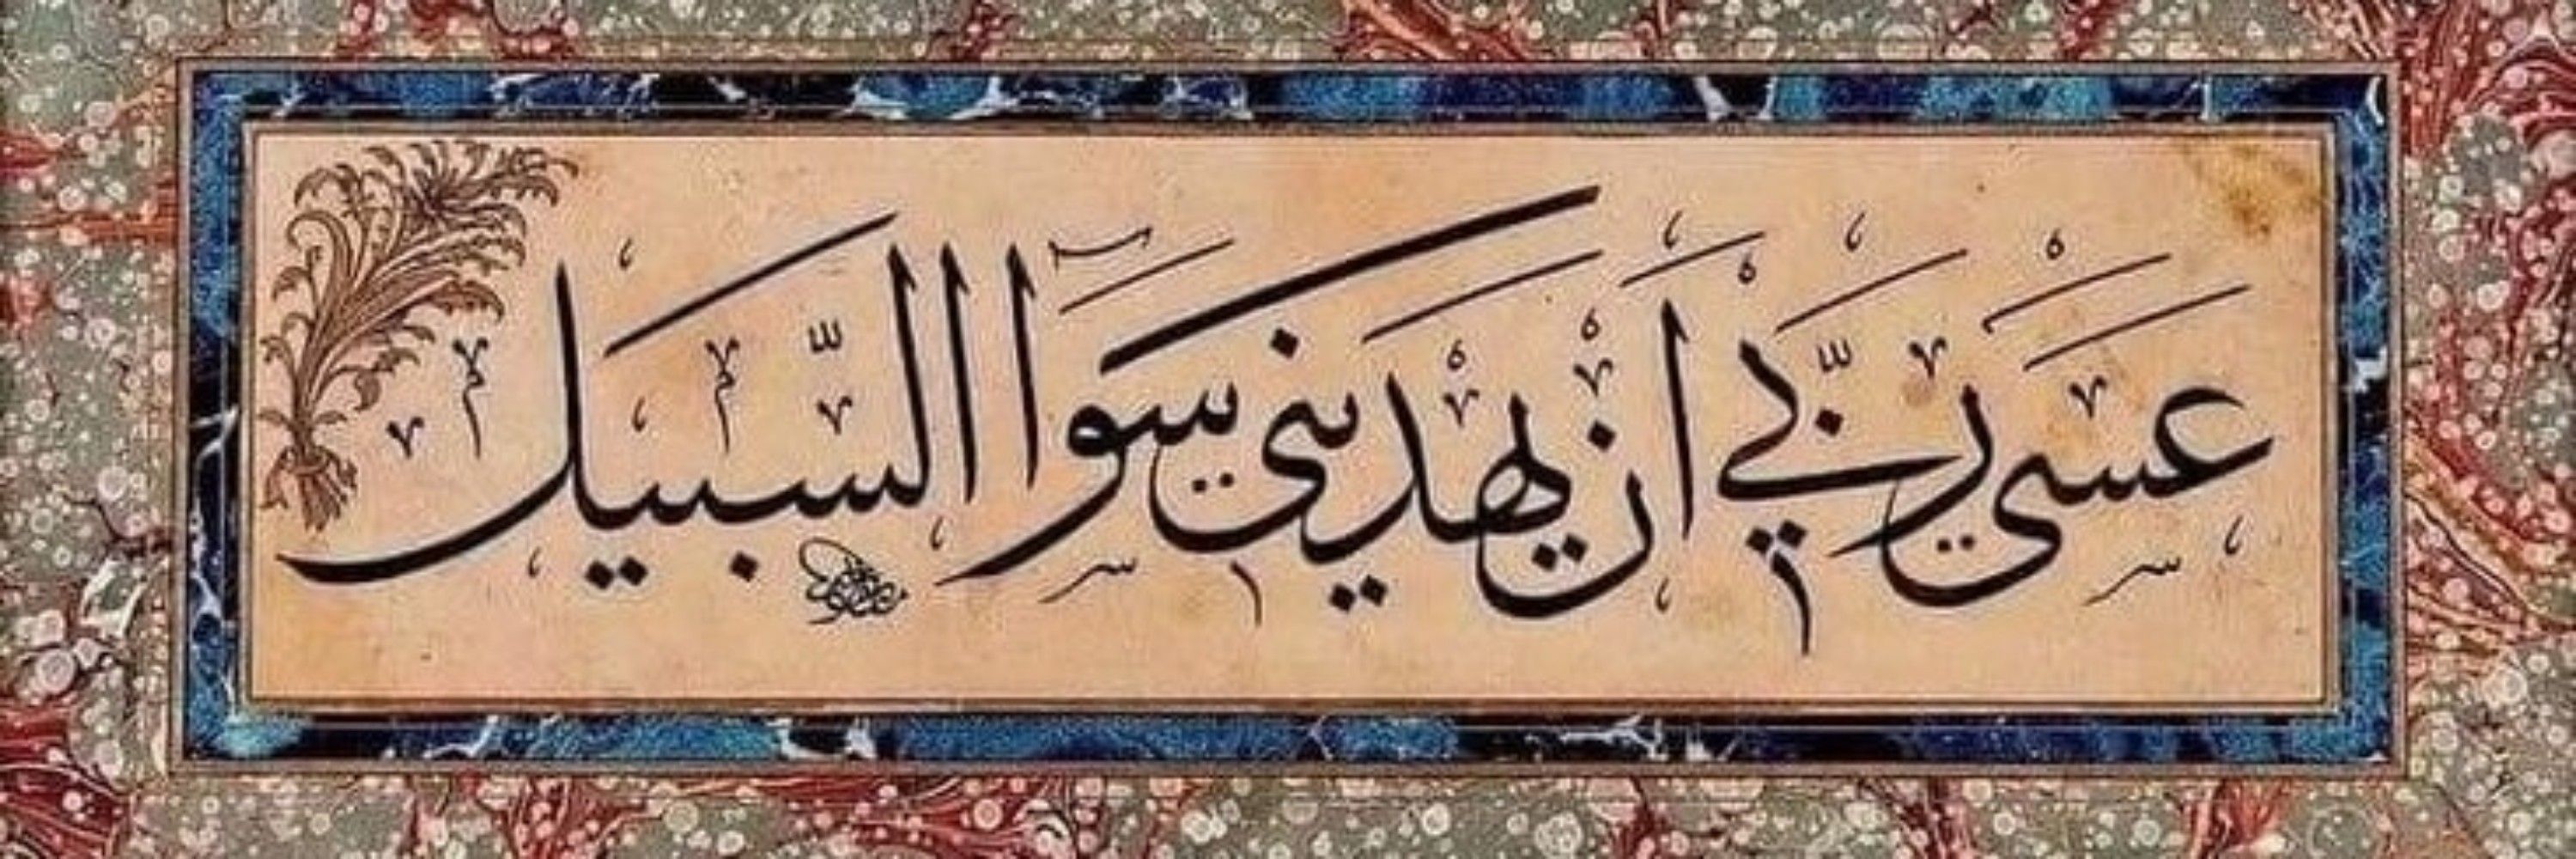 عَسٰى رَبّ۪ي اَنْ يَهْدِيَن۪ي سَوَٓاءَ السَّب۪يلِ